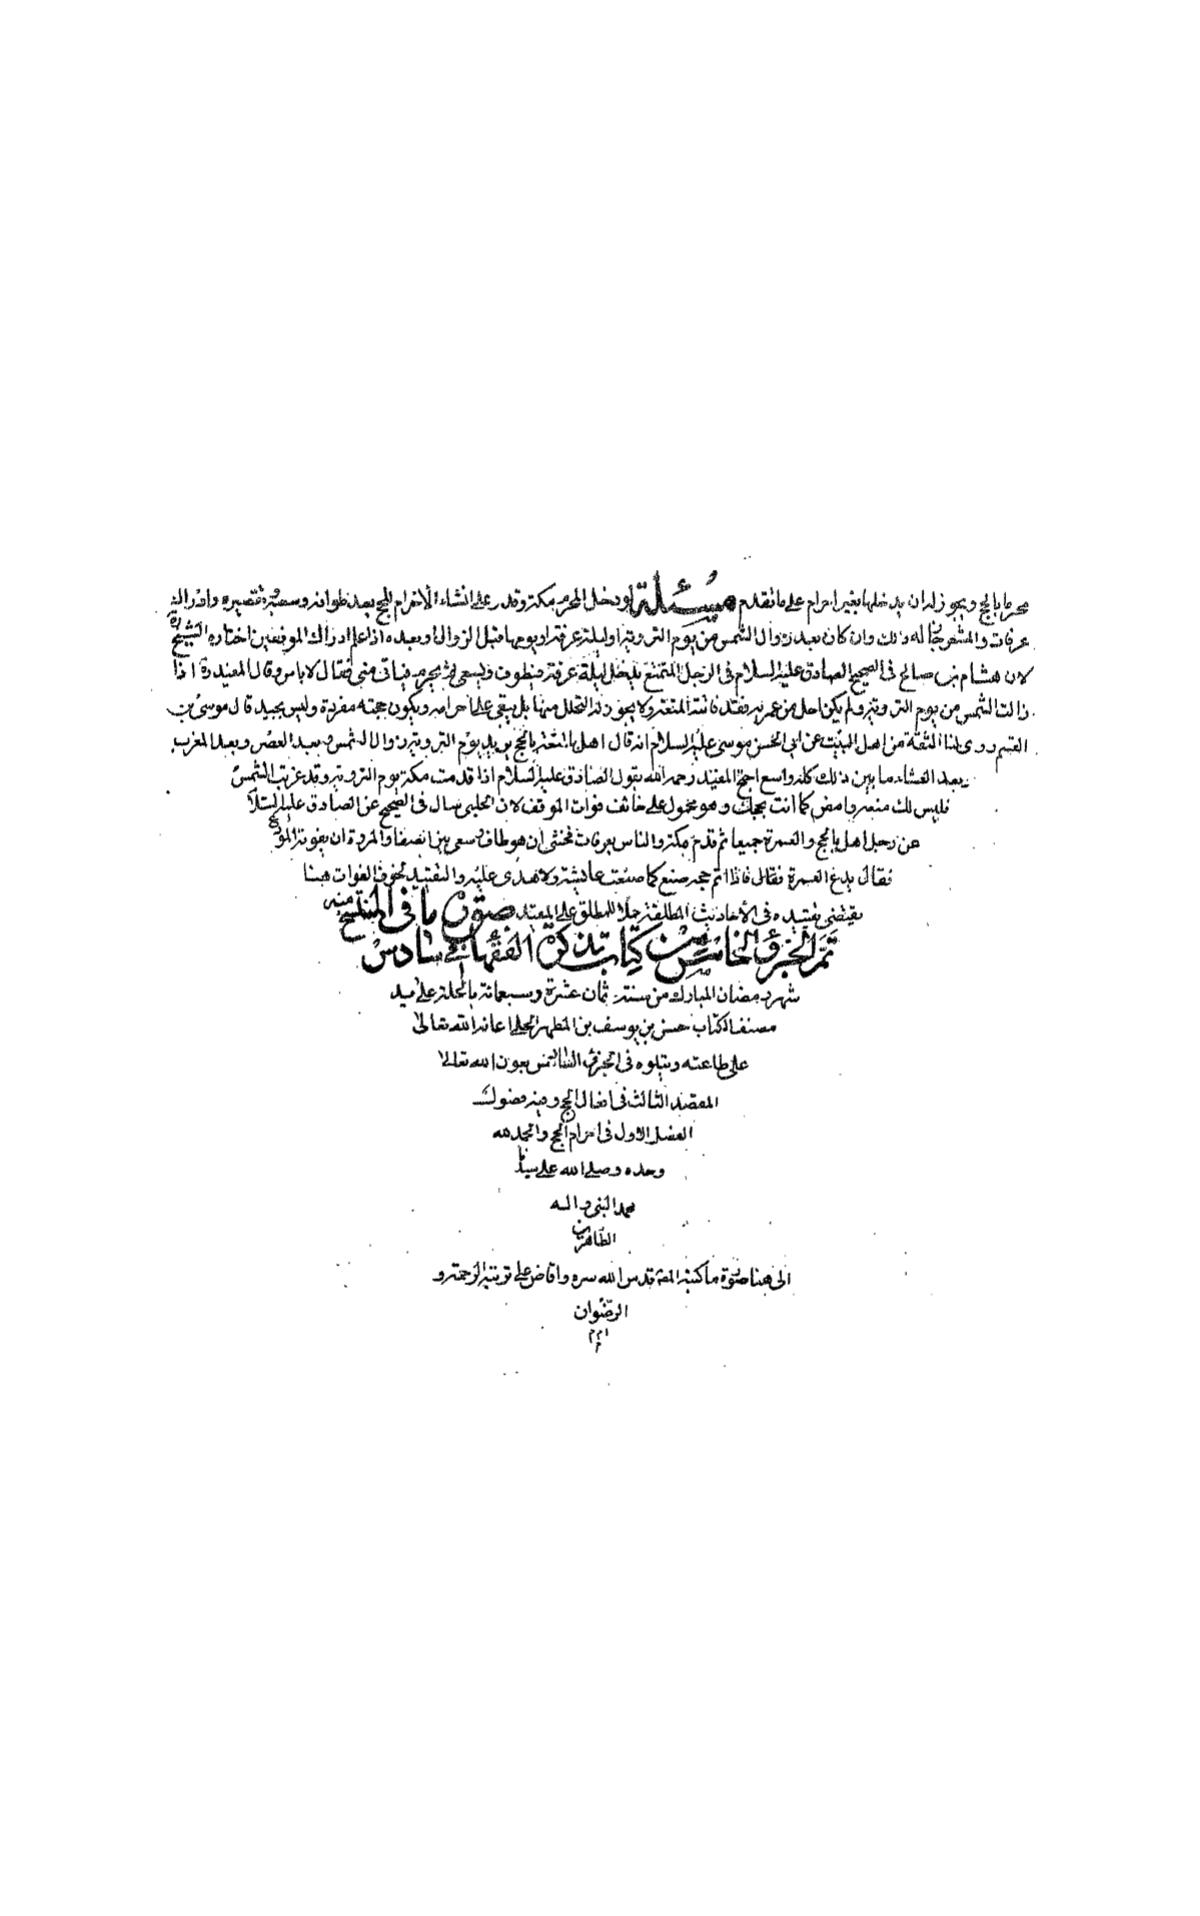 محرما بالحج ويجوز له ان يدخلها بغير احرام على ما تقدم مسئلة لو دخل المحرم مكة وقدر على انشاء الاحرام للحج بعد طوافه وسعيه وتقصيره وادراك
عرفات والمشعر جاز له ذلك وان كان بعد زوال الشمس من يوم التروية او ليلة عرفة او يومها قبل الزوال او بعده اذا علم ادراك الموقفين اختاره الشيخ ره
لان هشام بن سالم في الصحيح الصادق عليه السلام في الرجل المتمتع يدخل ليلة عرفة فيطوف ويسعى ثم يحرم فياتي منى فقال لا باس وقال المفيد ره اذا
زالت الشمس من يوم التروية ولم يكن احل من عمرته فقد فاتته المتعة ولا يجوز له التحلل منها بل يبقى على احرامه ويكون حجته مفردة وليس بجيد قال موسى بن
القسم روى لنا الثقة من اهل البيت عن ابي الحسن موسى عليه السلام انه قال اهل بالمتعة بالحج يريد يوم التروية زوال الشمس وبعد العصر وبعد المغرب
بعد العشاء ما بين ذلك كله واسع احتج المفيد رحمه الله بقول الصادق عليه السلام اذا قدمت مكة يوم التروية وقد غربت الشمس
فليس لك متعة وامض كما انت بحجك وهو محمول على خائف فوات الموقف لان الحلبي سال في الصحيح عن الصادق عليه السلام
عن رجل اهل بالحج والعمرة جميعا ثم قدم مكة والناس بعرفات فخشى ان هو طاف وسعى بين الصفا والمروة ان يفوته الموقف
فقال يدع العمرة فقال فاذا اتم حجه صنع كما صنعت عايشة ولا هدى عليه والتقييد بخوف الفوات هنا
يقتضي تقييده في الاحاديث المطلقة حملا للمطلق على المقيد صورة ما في المنتسخ منه
تم الجزؤ الخامس من كتاب تذكرة الفقهاء في سادس
شهر رمضان المبارك من سنة ثمان عشرة وسبعمائة بالحلة على يد
مصنف الكتاب حسن بن يوسف بن المطهر الحلي اعانه الله تعالى
على طاعته ويتلوه في الجزؤ السادس بعون الله تعالى
المقصد الثالث في افعال الحج وفيه فصول
الفصل الاول في احرام الحج والحمد لله
وحده وصلى الله على سيدنا
محمد النبي واله
الطاهرين
الى هنا صورة ما كتبه المصنف قدس الله سره وافاض على تربته الرحمة و
الرضوان